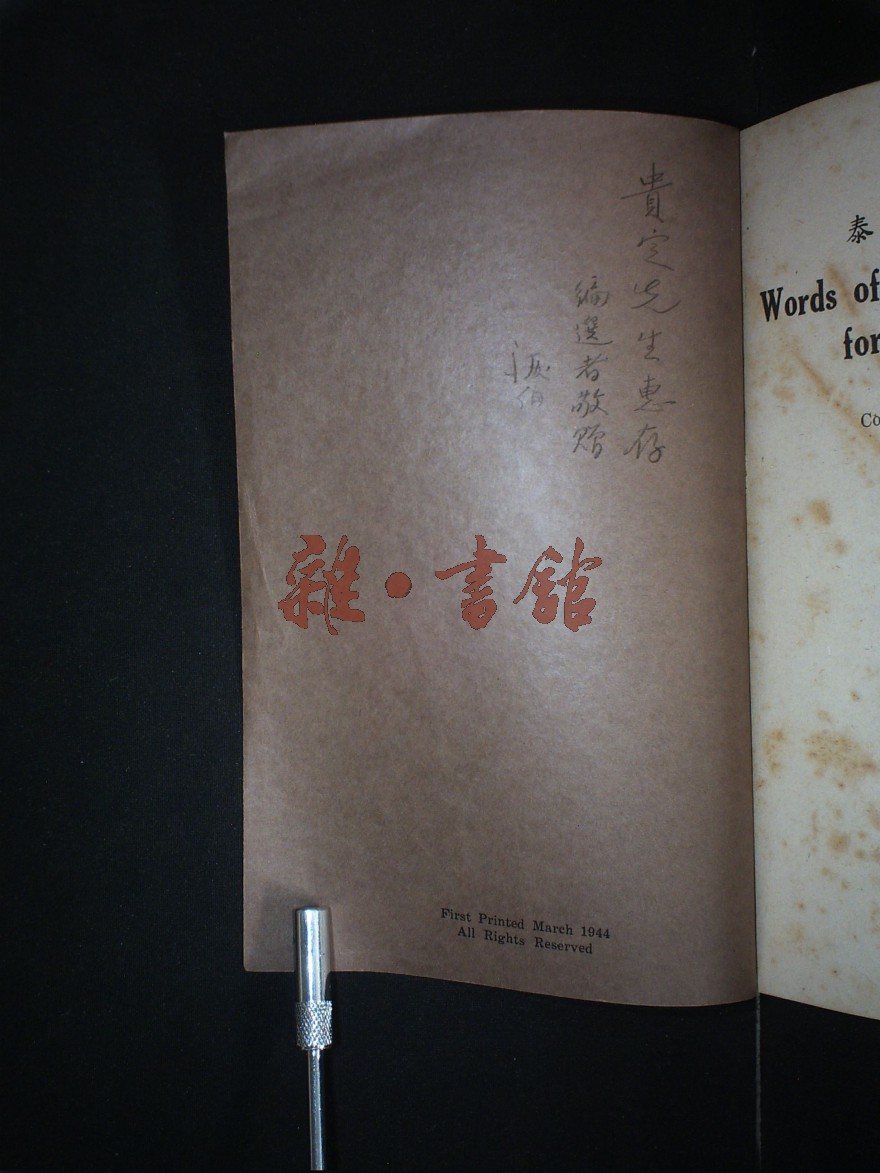 貴定先生惠存
編選者敬贈
雜·書館
First Printed March 1944
All Rights Reserved
泰
Words of
for
Co